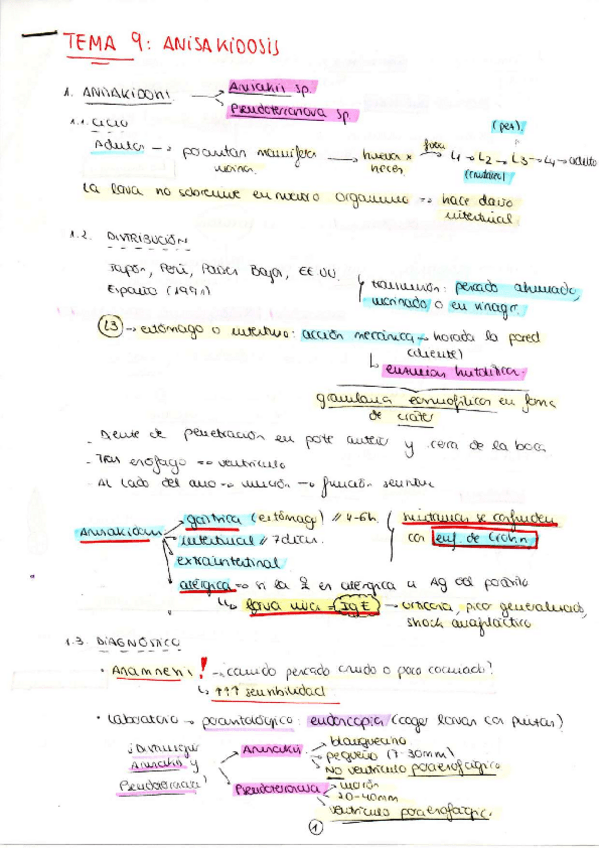 TEMA 9: ANISAKIDOSIS
1. ANISAKIDOS: → Anisakis sp.
→ Pseudoterranova sp
1.1. CICLO (pez)
Adultos → parasitan mamíferos marinos → huevos x heces → fuera L1 → L2 → L3 → L4 → adulto
(crustáceo)
La larva no sobrevive en nuestro organismo → hace daño
intestinal
1.2. DISTRIBUCIÓN
Japón, Perú, Países Bajos, EE UU.
España (1991)
transmisión: pescado ahumado,
marinado o en vinagre
L3 → estómago o intestino: acción mecánica → horada la pared
(diente)
↳ enzimas histolíticas.
granuloma eosinofílico en forma
de cráter
- Diente de penetración en parte anterior y cerca de la boca
- Tras esófago → ventrículo
- Al lado del ano → mucrón → función sensorial
Anisakidosis → gástrica (estómago) // 4-6h.
→ intestinal // 7 días.
→ extraintestinal
síntomas se confunden
con enf. de Crohn
→ alérgica → si la es alérgica a Ag del parásito
↳ larva viva = IgE → urticaria, pico generalizado,
shock anafiláctico
1.3. DIAGNÓSTICO
• Anamnesis! → ¿comido pescado crudo o poco cocinado?
↳ ↑↑↑ sensibilidad
• Laboratorio → parasitológico: endoscopia (coger larvas con pinzas)
¡Distinguir Anisakis y Pseudoterranova!
Anisakis → blanquecino
→ pequeño (7-30mm)
→ No ventrículo paraesofágico
Pseudoterranova → marrón
→ 20-40mm
→ ventrículo paraesofágic.
1